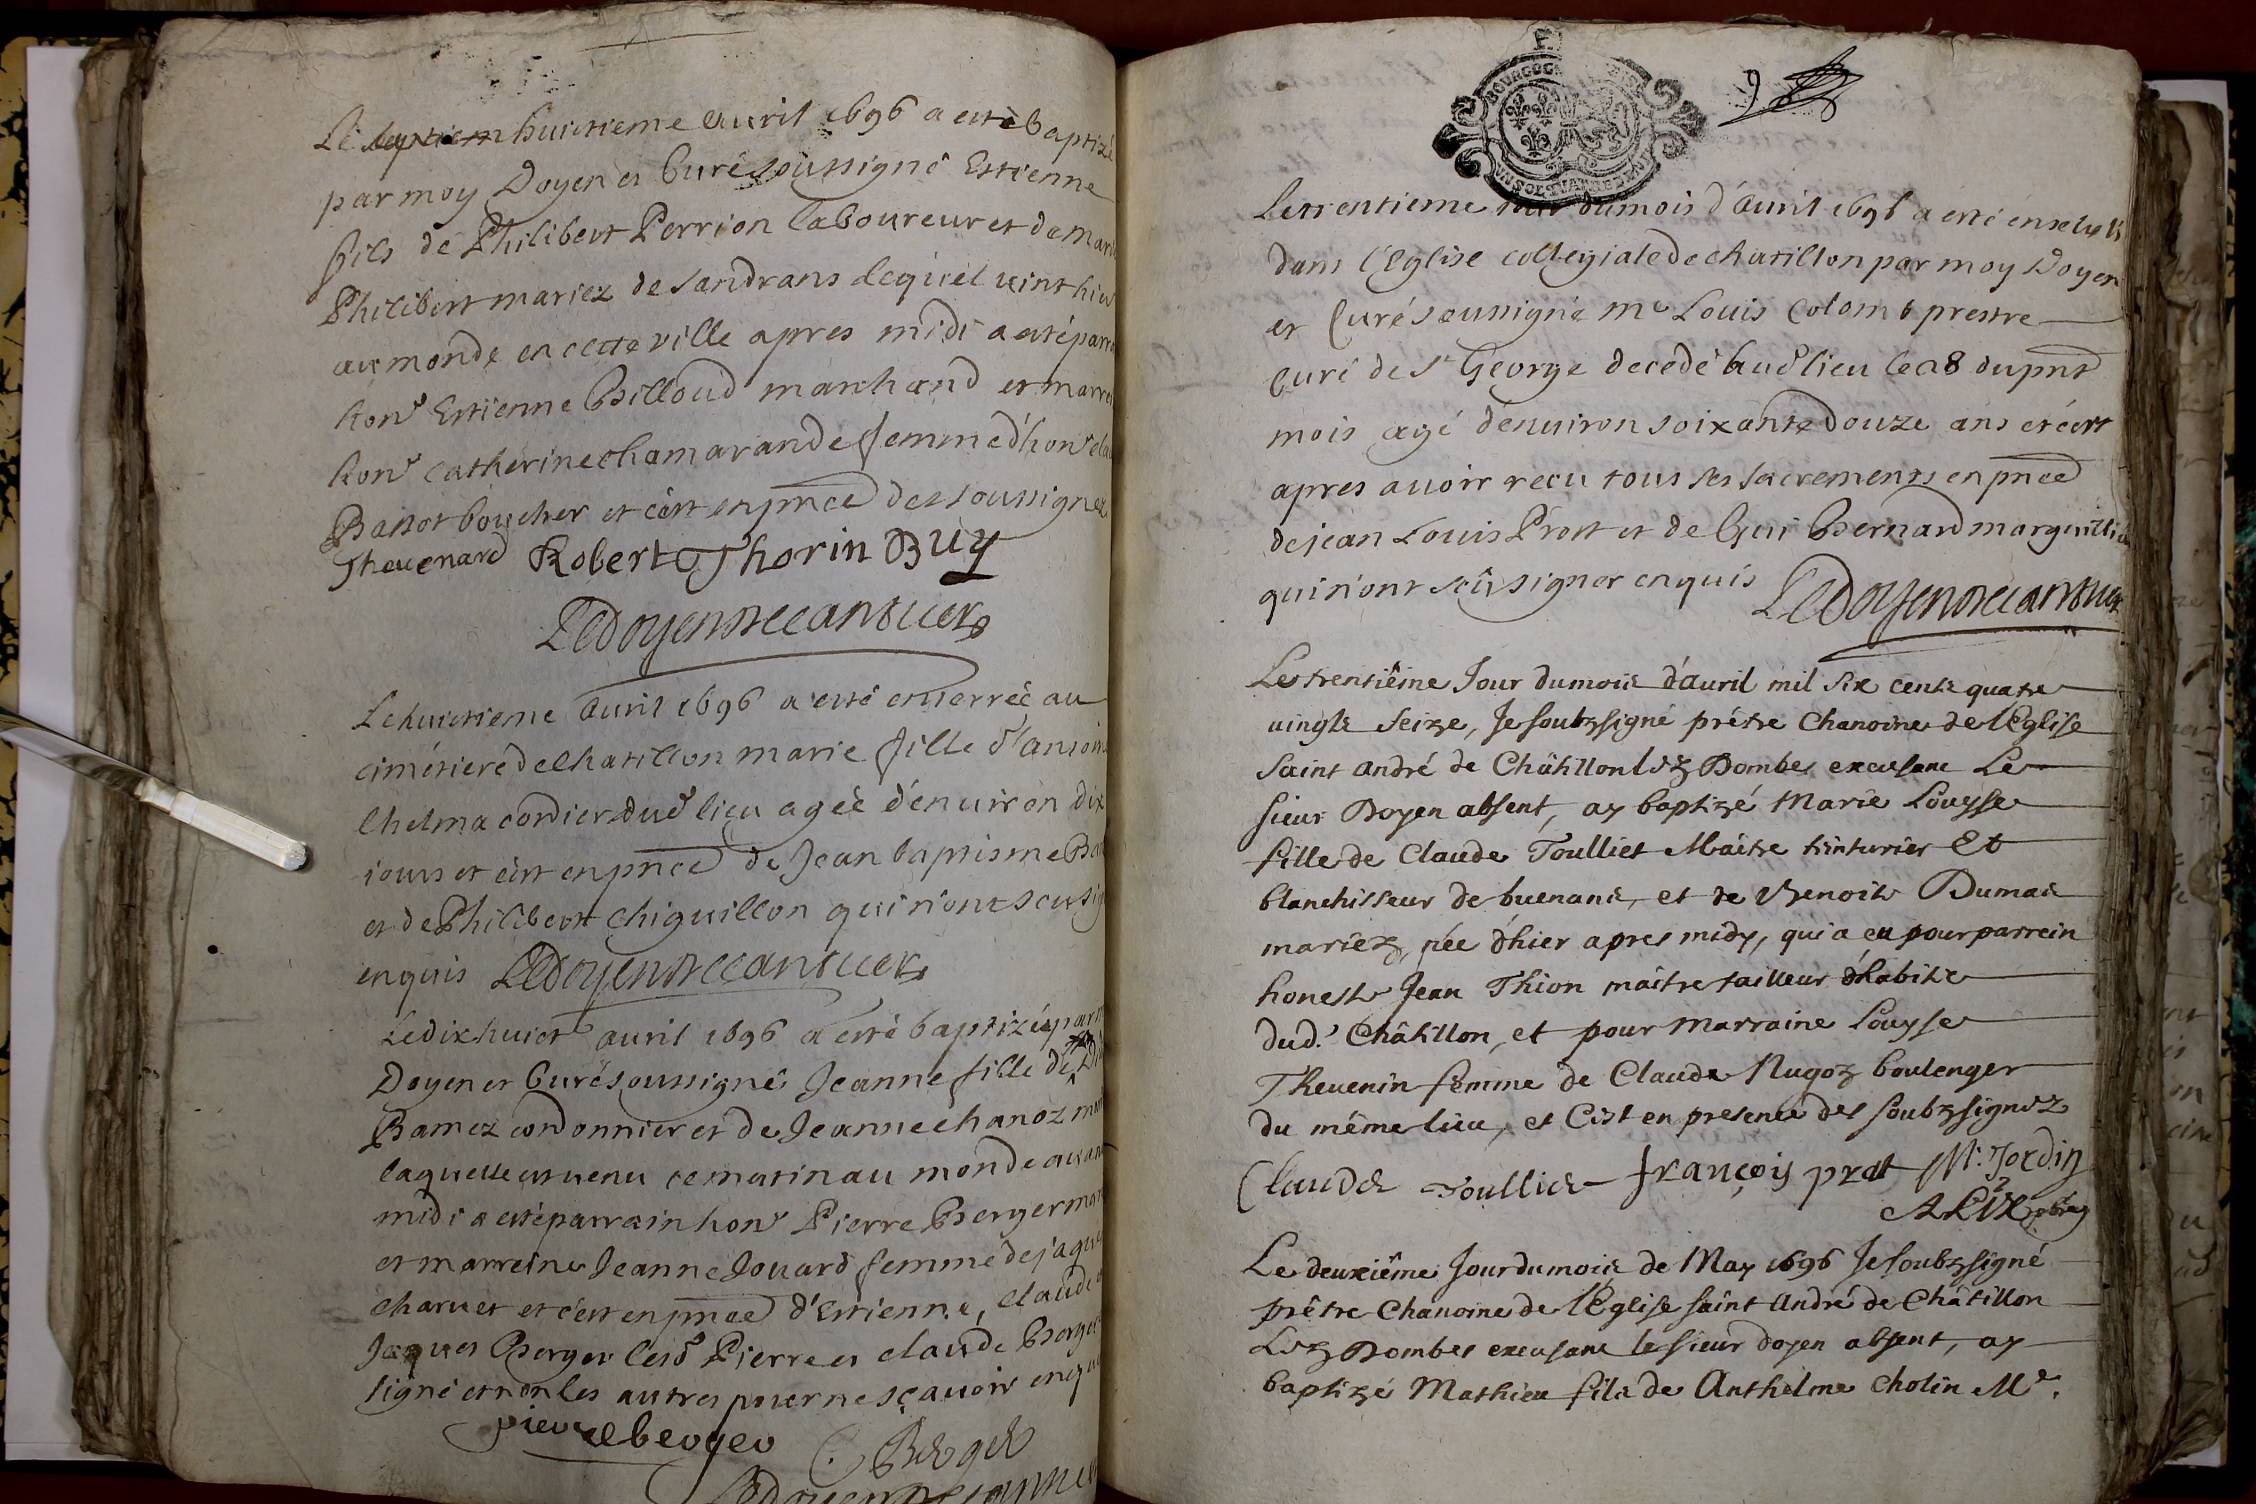 Le septiem huictieme avril 1696 a esté baptizé
par moy Doyen et Curé soussigné Estienne
fils de Philibert Perrion laboureur et de Marie
Philibert mariez de Sandrans lequel vint hier
au monde en cette ville apres midi a esté parrain
honᵉ Estienne Billoud marchand et marreine
honᵉ Catherine Chamarande femme d'honᵉ
Bassot boucher et c'est en pnce des soussignez
Thevenard Robert Thorin Buy
Le doyen
Le huictieme avril 1696 a esté enterrée au
cimetiere de Chatillon marie fille d'Antoine
Chelma cordier dud lieu agée d'environ dix
jours et c'est en pnce de Jean baptisme
et de Philibert Chiguillon qui n'ont sceu sig
enquis Le doyen
Le dix huict avril 1696 a esté baptizée par
Doyen et Curé soussigné Jeanne fille de
Ramez cordonnier et de Jeanne chanoz
laquelle est venu ce matin au monde avant
midi a esté parrain honᵉ Pierre Berger
et marreine Jeanne Jouard femme de Jaque
charvet et c'est en pnce d'Estienne, claude
Jaques Berger lesd Pierre et claude Berger
signé et non les autres pour ne sçavoir enquis
pierre berger C. Berger
Le doyen
9
Le trentieme jour du mois d'Avril 1696 a esté ensevely
dans l'Eglise collegiale de chatillon par moy Doyen
et Curé soussigné mᵉ Louis Colomb prestre
curé de Sᵗ George decedé aud lieu le 28 du pnt
mois agé d'environ soixante douze ans et c'est
apres avoir recu tous ses sacrements en pnce
de jean Louis Prost et de Gui Bernard marguillier
qui n'ont sceu signer enquis Le doyen
Le trentiême Jour du mois d'avril mil six cents quatre
vingts seize, Je soubzsigné prêtre Chanoine de l'Eglise
saint andré de Châtillon lez Dombes excusant Le
sieur Doyen absent, ay baptizé Marie Louyse
fille de Claude Toulliet Maître tinturier Et
blanchisseur de buenans, et de Benoite Dumas
mariez, née d'hier apres midy, qui a eu pour parrein
honeste Jean Thion maître tailleur d'habits
dud. Châtillon, et pour marraine Louyse
Thevenin femme de Claude Nugoz boulenger
du même lieu, et C'est en presence des soubzsignez
Claude Toullier françois prat M. Jordin
ARix pbre
Le deuxiême Jour du mois de May 1696 Je soubzsigné
prêtre Chanoine de l'Eglise saint André de Châtillon
Lez Dombes excusant le sieur doyen absent, ay
baptizé Mathieu fils de Anthelme Cholin Mᵉ.